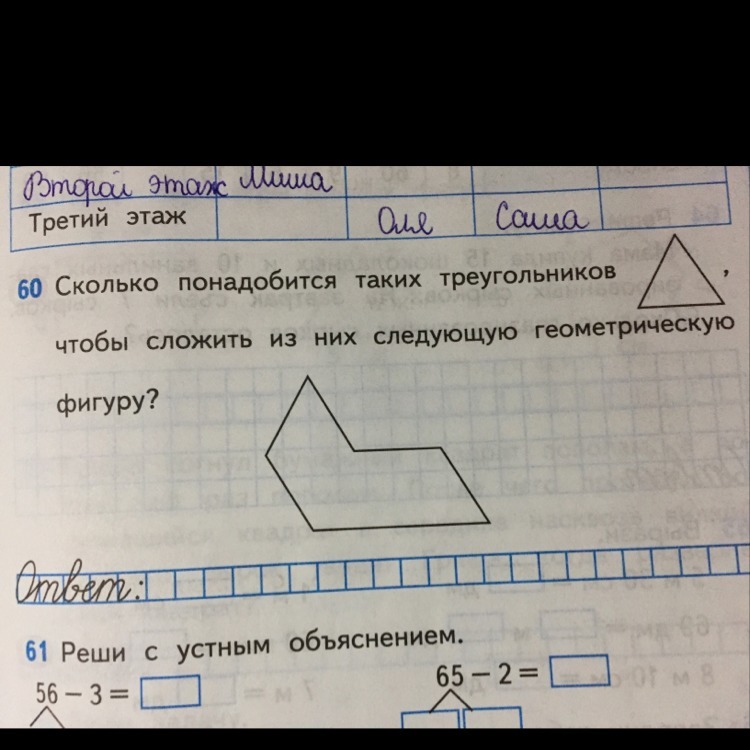 Второй этаж Миша
Третий этаж Оля Саша
60 Сколько понадобится таких треугольников ,
чтобы сложить из них следующую геометрическую
фигуру?
Ответ:
61 Реши с устным объяснением.
56 – 3 =
65 – 2 =